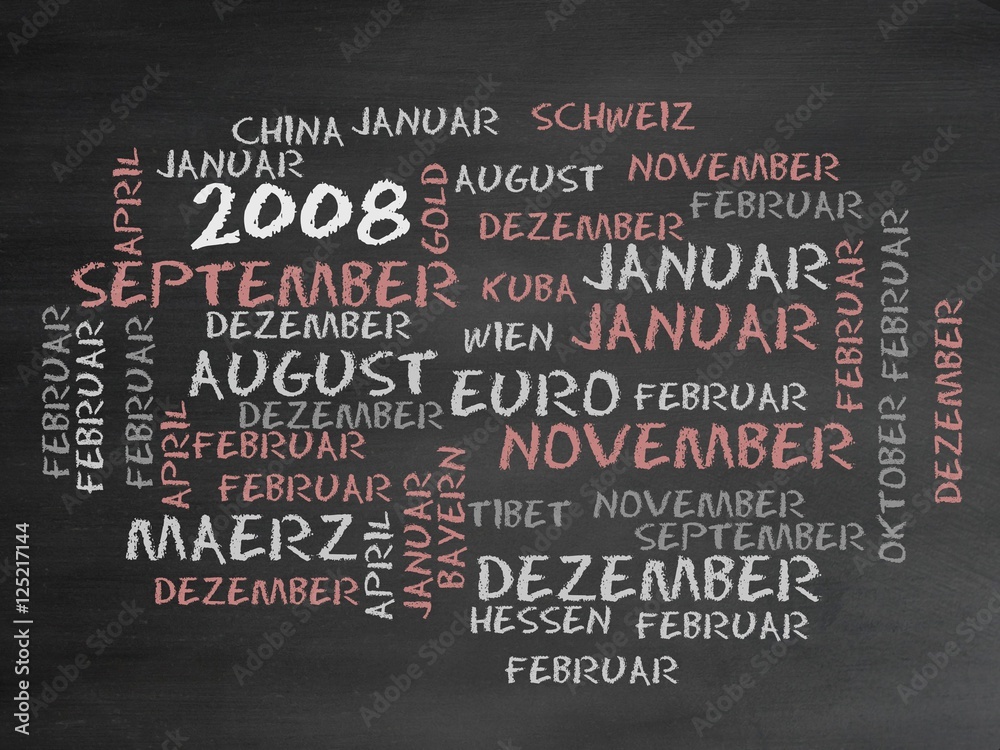 CHINA
JANUAR
SCHWEIZ
JANUAR
APRIL
2008
GOLD
AUGUST
NOVEMBER
FEBRUAR
DEZEMBER
SEPTEMBER
KUBA
JANUAR
DEZEMBER
WIEN
JANUAR
FEBRUAR
FEBRUAR
FEBRUAR
FEBRUAR
FEBRUAR
AUGUST
EURO
FEBRUAR
FEBRUAR
DEZEMBER
DEZEMBER
APRIL
FEBRUAR
NOVEMBER
OKTOBER
FEBRUAR
JANUAR
BAYERN
TIBET
NOVEMBER
SEPTEMBER
MAERZ
APRIL
DEZEMBER
DEZEMBER
HESSEN
FEBRUAR
FEBRUAR
Adobe Stock | #125217144